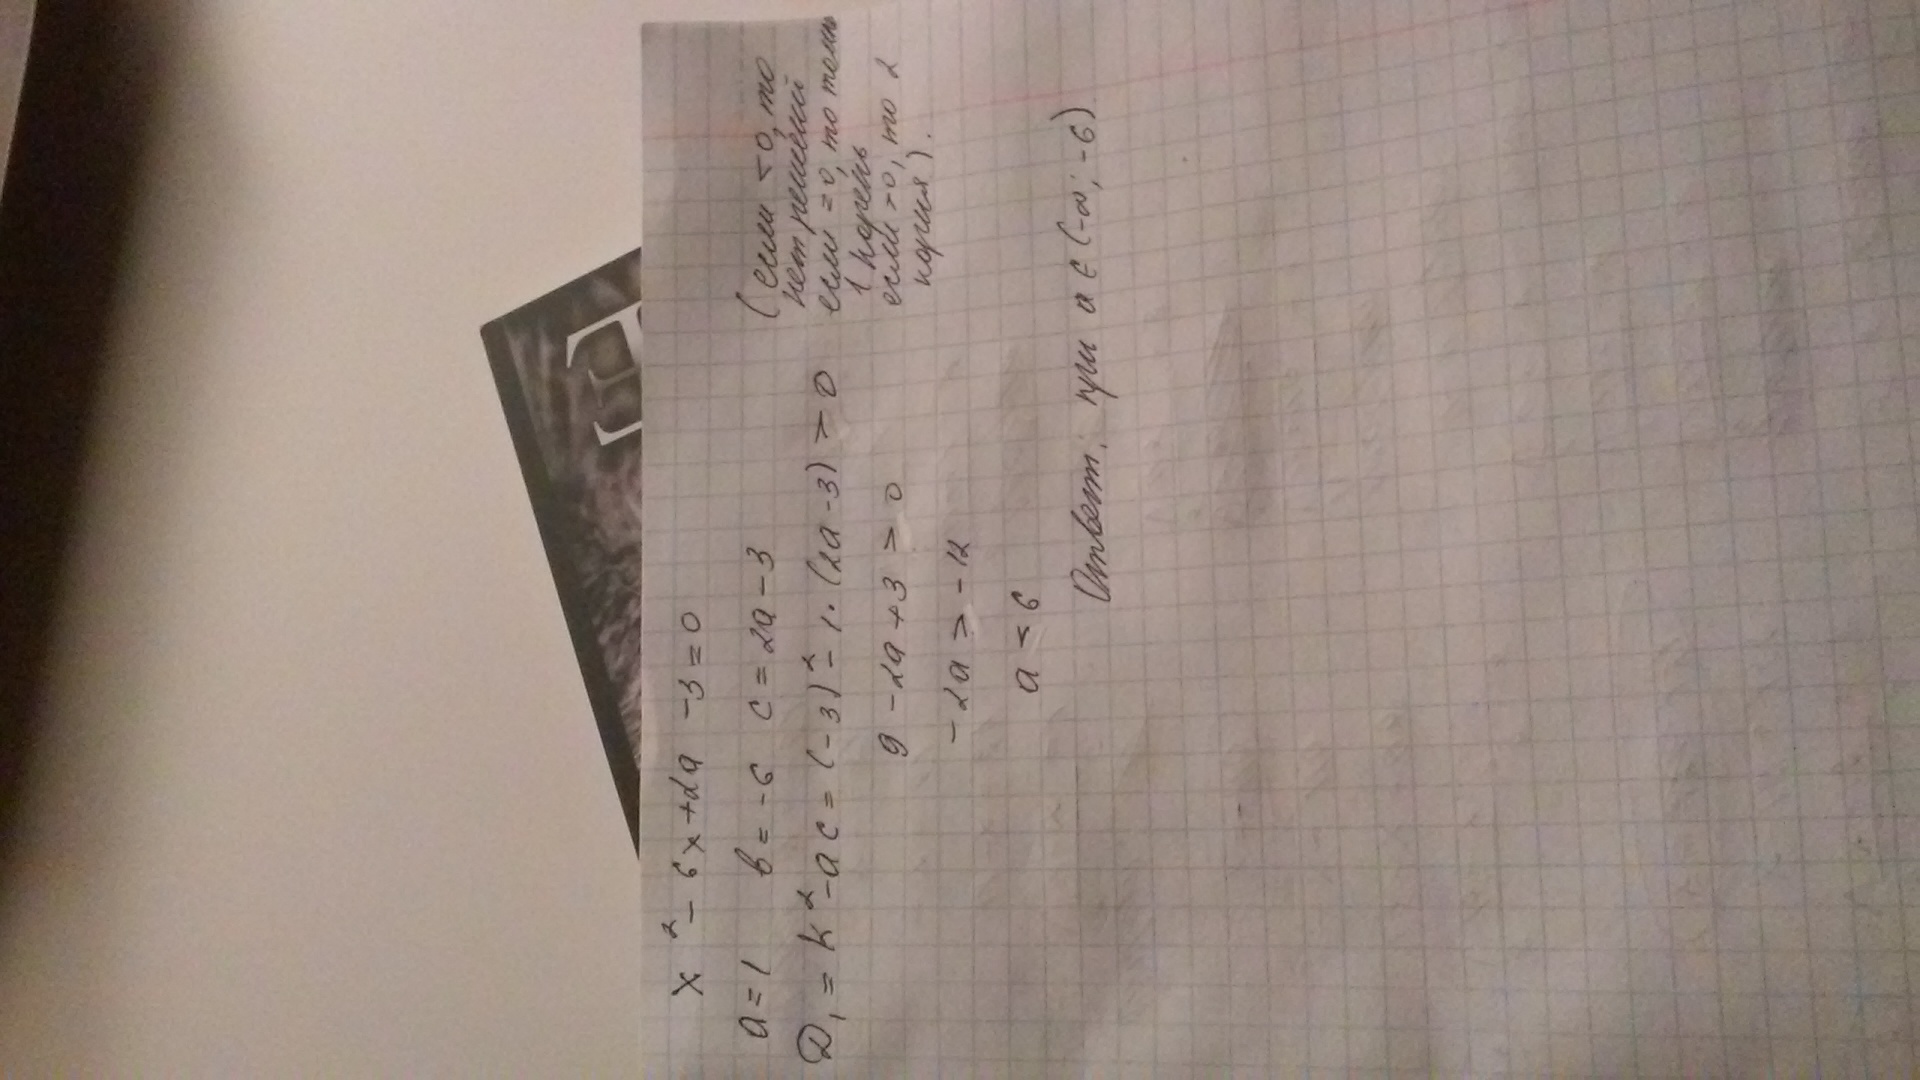 x² - 6x + 2a - 3 = 0
a = 1 в = -6 c = 2a - 3
D₁ = k² - ac = (-3)² - 1·(2a - 3) > 0
(если <0, то
нет решений
если =0, то толь
1 корень
если >0, то 2
корня).
9 - 2a + 3 > 0
-2a > -12
a < 6
Ответ: при a ∈ (-∞; -6)